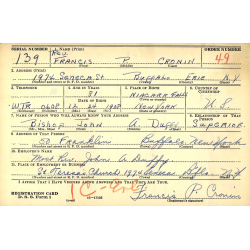 SERIAL NUMBER 1. NAME (Print) ORDER NUMBER
Rev.
139 FRANCIS P. CRONIN 49
2. ADDRESS (Print)
1974 Seneca St. Buffalo Erie N.Y.
3. TELEPHONE 4. AGE IN YEARS 5. PLACE OF BIRTH 6. COUNTRY OF CITIZENSHIP
31 Niagara Falls
DATE OF BIRTH
24 1908 New York U.S.
7. NAME OF PERSON WHO WILL ALWAYS KNOW YOUR ADDRESS 8. RELATIONSHIP OF THAT PERSON
Bishop John A. Duffy Superior
9. ADDRESS OF THAT PERSON
Franklin Buffalo New York
10. EMPLOYER'S NAME
Most Rev. John A. Duffy
11. PLACE OF EMPLOYMENT OR BUSINESS
St Teresa Church 1974 Seneca Bflo. N.Y.
I AFFIRM THAT I HAVE VERIFIED ABOVE ANSWERS AND THAT THEY ARE TRUE.
REGISTRATION CARD
D. S. S. Form 1 Francis P. Cronin